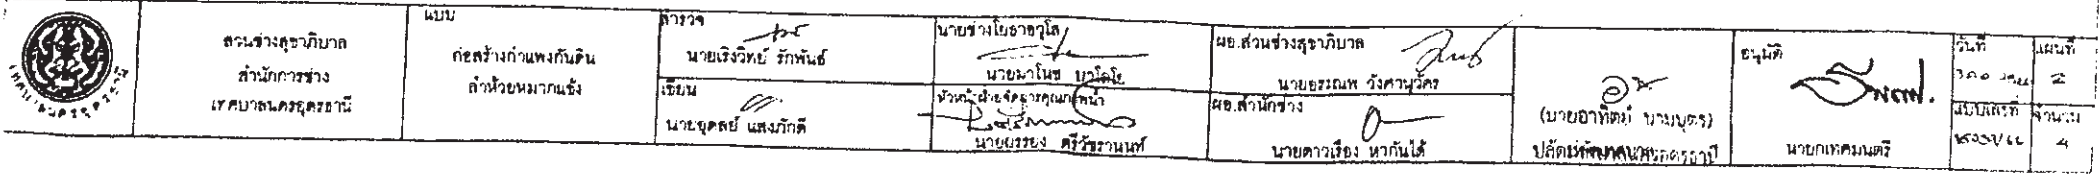 เทศบาลนครอุดรธานี
ส่วนช่างสุขาภิบาล
สำนักการช่าง
เทศบาลนครอุดรธานี
แบบ
ก่อสร้างกำแพงกันดิน
ลำห้วยหมากแข้ง
สำรวจ
นายเริงวิทย์ รักพันธ์
เขียน
นายยุคลย์ แสงภักดี
นายช่างโยธาอาวุโส
นายมาโนช
หัวหน้าฝ่ายจัดการคุณภาพน้ำ
นายบรรยง ศรีวัชรานนท์
ผอ.ส่วนช่างสุขาภิบาล
นายอรรณพ วังศานุวัตร
ผอ.สำนักช่าง
นายดาวเรือง หากันได้
(นายอาทิตย์ นามบุตร)
อนุมัติ
นายกเทศมนตรี
วันที่
แผ่นที่
2
แบบเลขที่
จำนวน
4